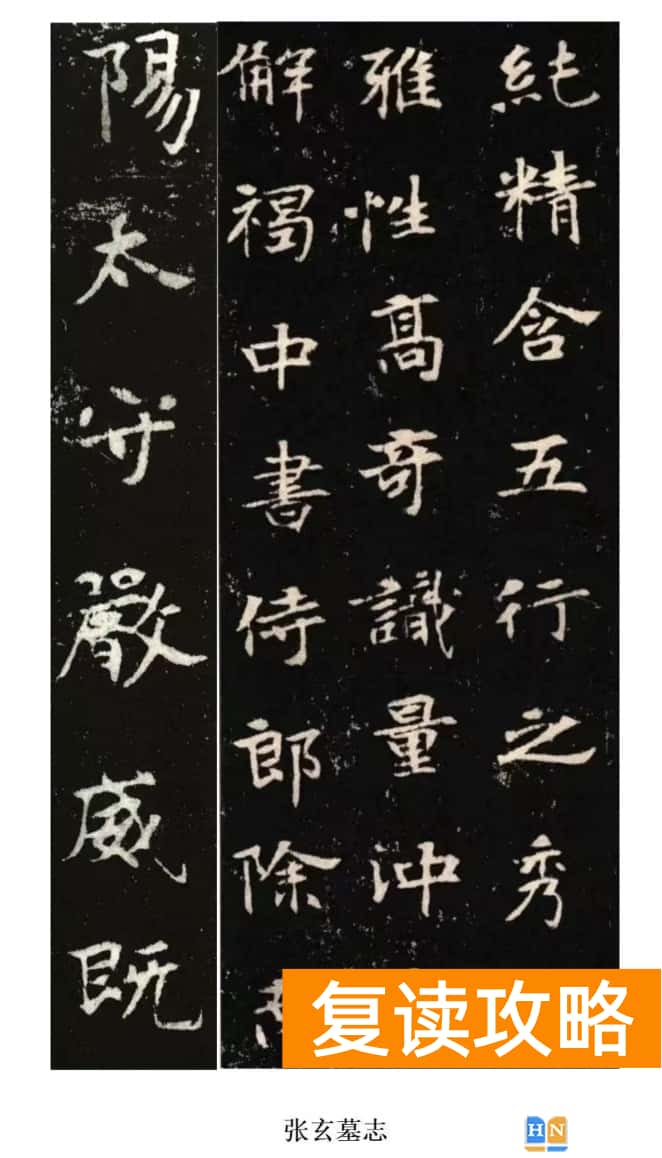 純精含五行之秀
雅性髙奇識量沖
解褐中書侍郎除
陽太守嚴威既
复读攻略
张玄墓志
HN